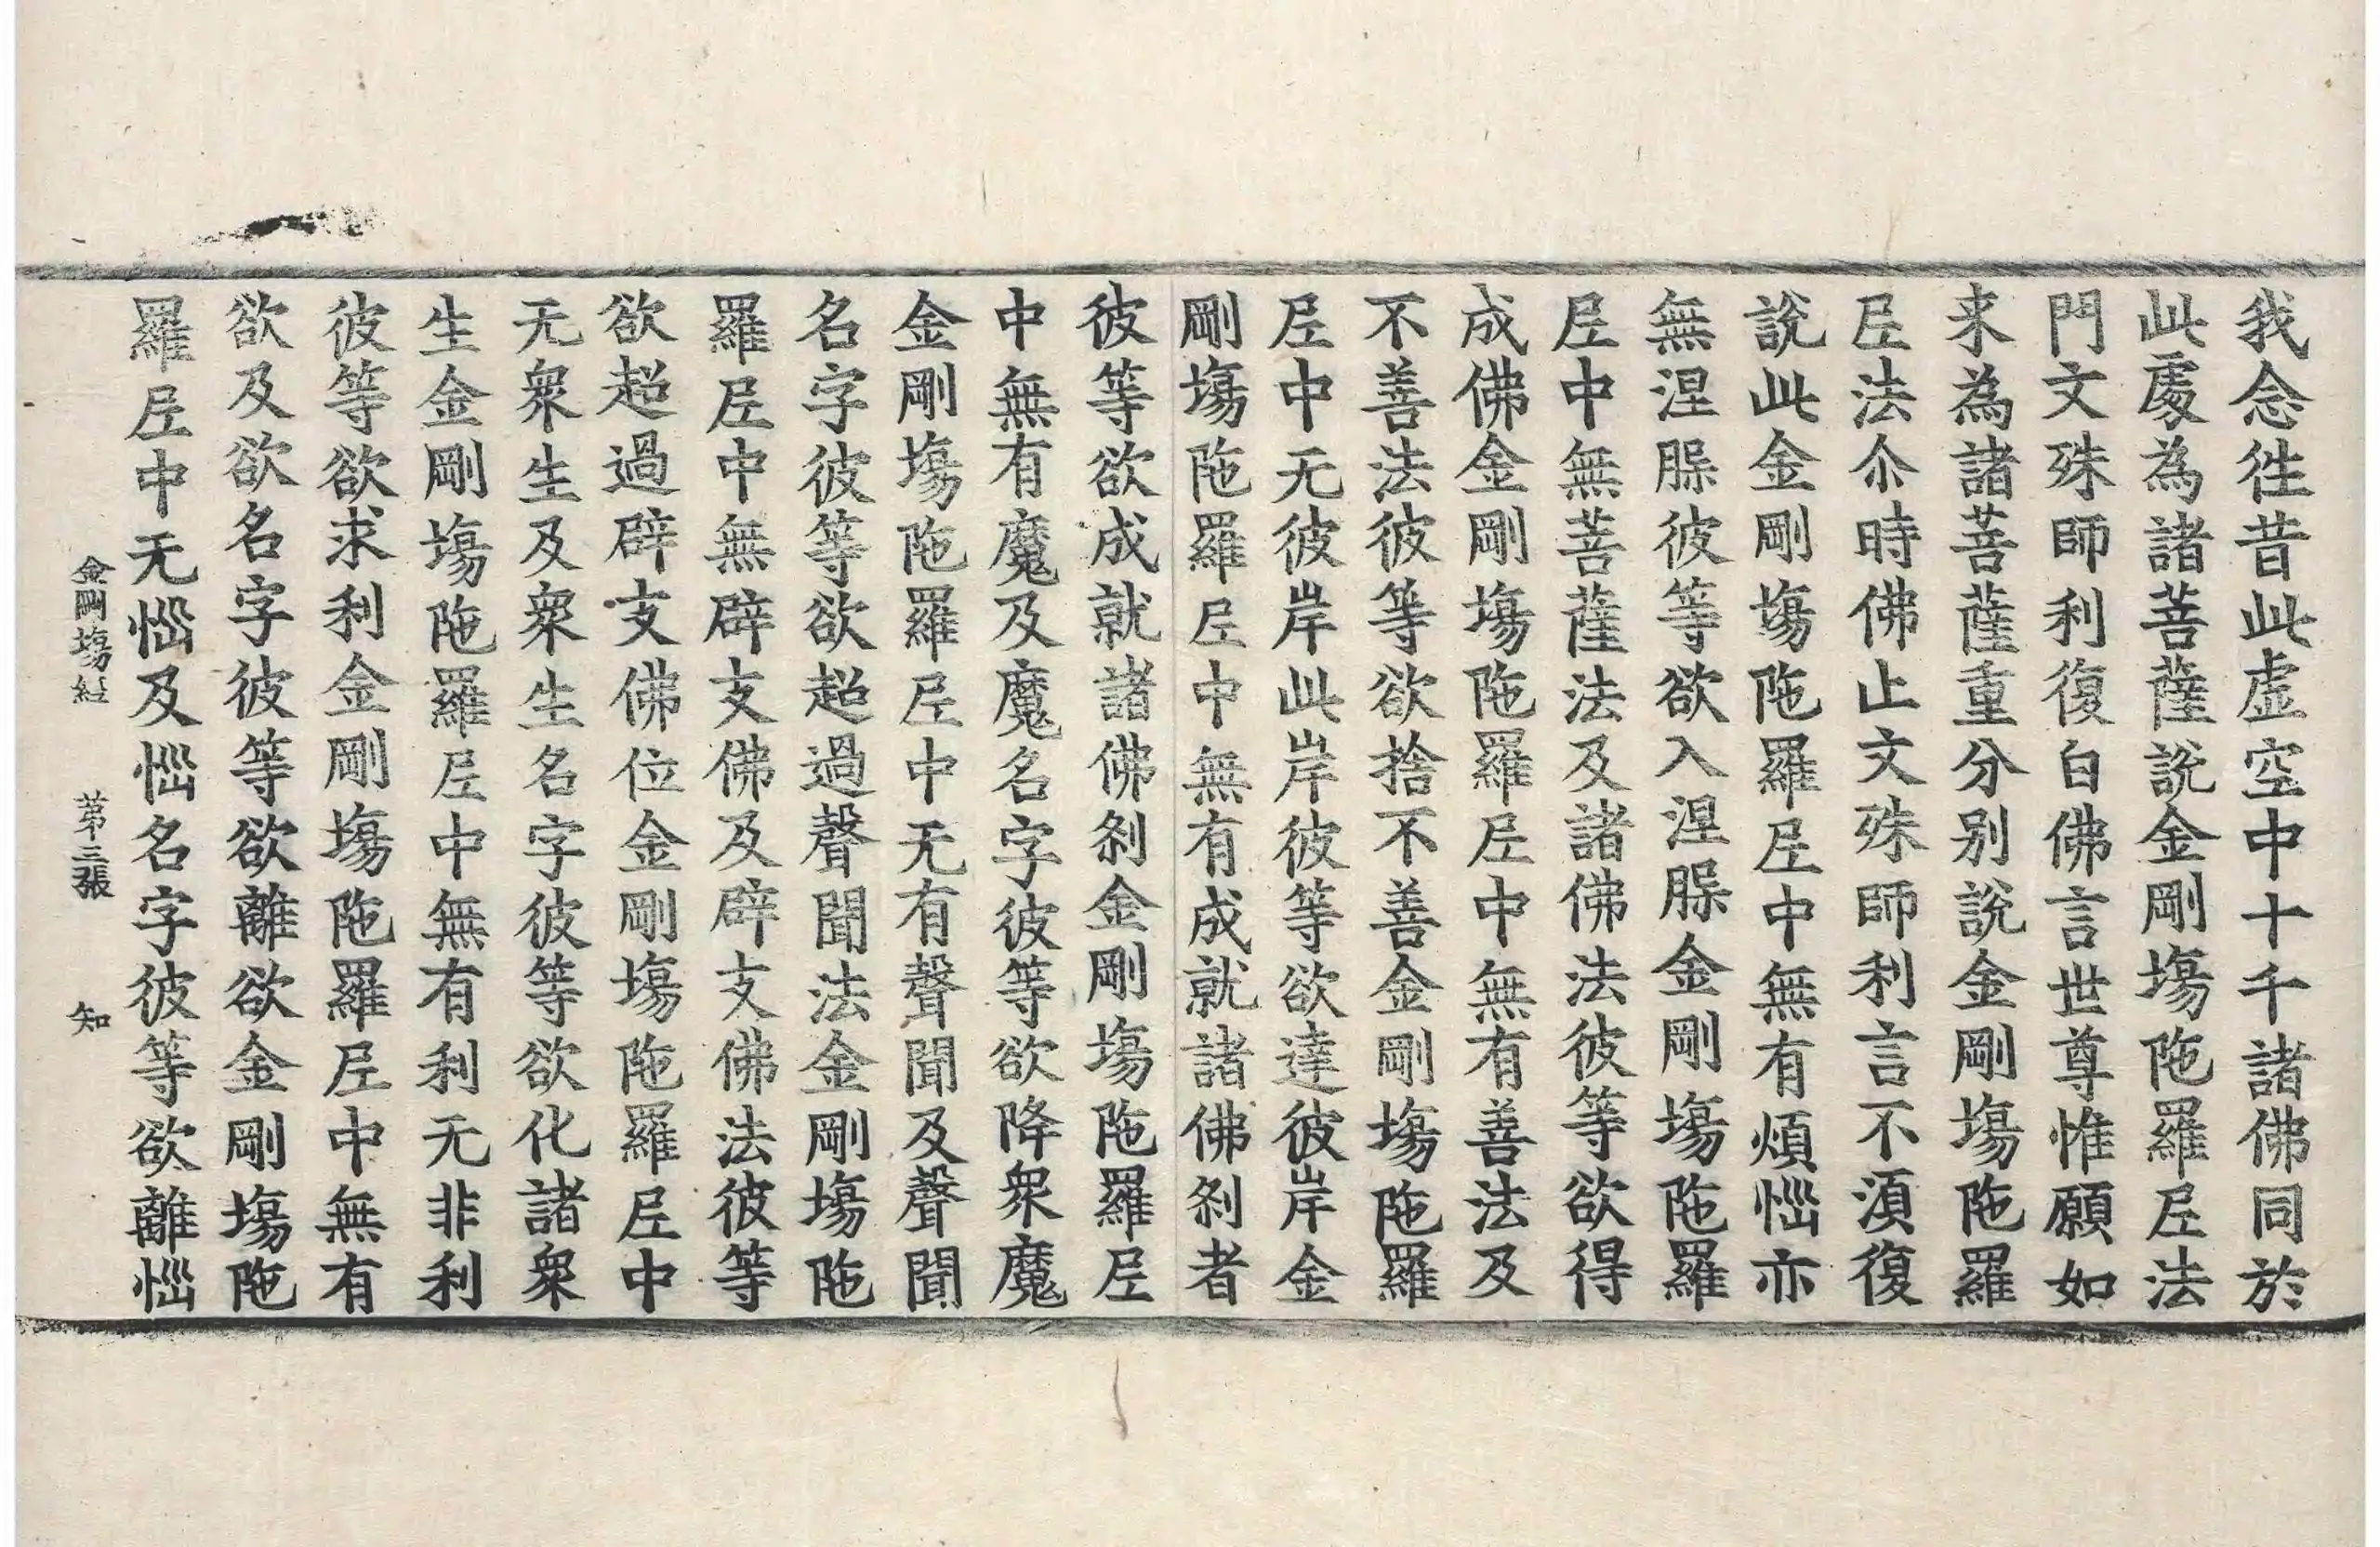 我念徃昔此虛空中十千諸佛同於
此處為諸菩薩說金剛場陁羅𡰱法
門文殊師利復白佛言世尊惟願如
来為諸菩薩重分別說金剛場陁羅
𡰱法尒時佛止文殊師利言不湏復
說此金剛場陁羅𡰱中無有煩惱亦
無涅槃彼等欲入涅槃金剛場陁羅
𡰱中無菩薩法及諸佛法彼等欲得
成佛金剛場陁羅𡰱中無有善法及
不善法彼等欲捨不善金剛場陁羅
𡰱中无彼岸此岸彼等欲達彼岸金
剛場陁羅𡰱中無有成就諸佛剎者
彼等欲成就諸佛剎金剛場陁羅𡰱
中無有魔及魔名字彼等欲降衆魔
金剛場陁羅𡰱中无有聲聞及聲聞
名字彼等欲超過聲聞法金剛場陁
羅𡰱中無辟支佛及辟支佛法彼等
欲超過辟支佛位金剛場陁羅𡰱中
无衆生及衆生名字彼等欲化諸衆
生金剛場陁羅𡰱中無有利无非利
彼等欲求利金剛場陁羅𡰱中無有
欲及欲名字彼等欲離欲金剛場陁
羅𡰱中无惱及惱名字彼等欲離惱
金剛場經 第三張 知